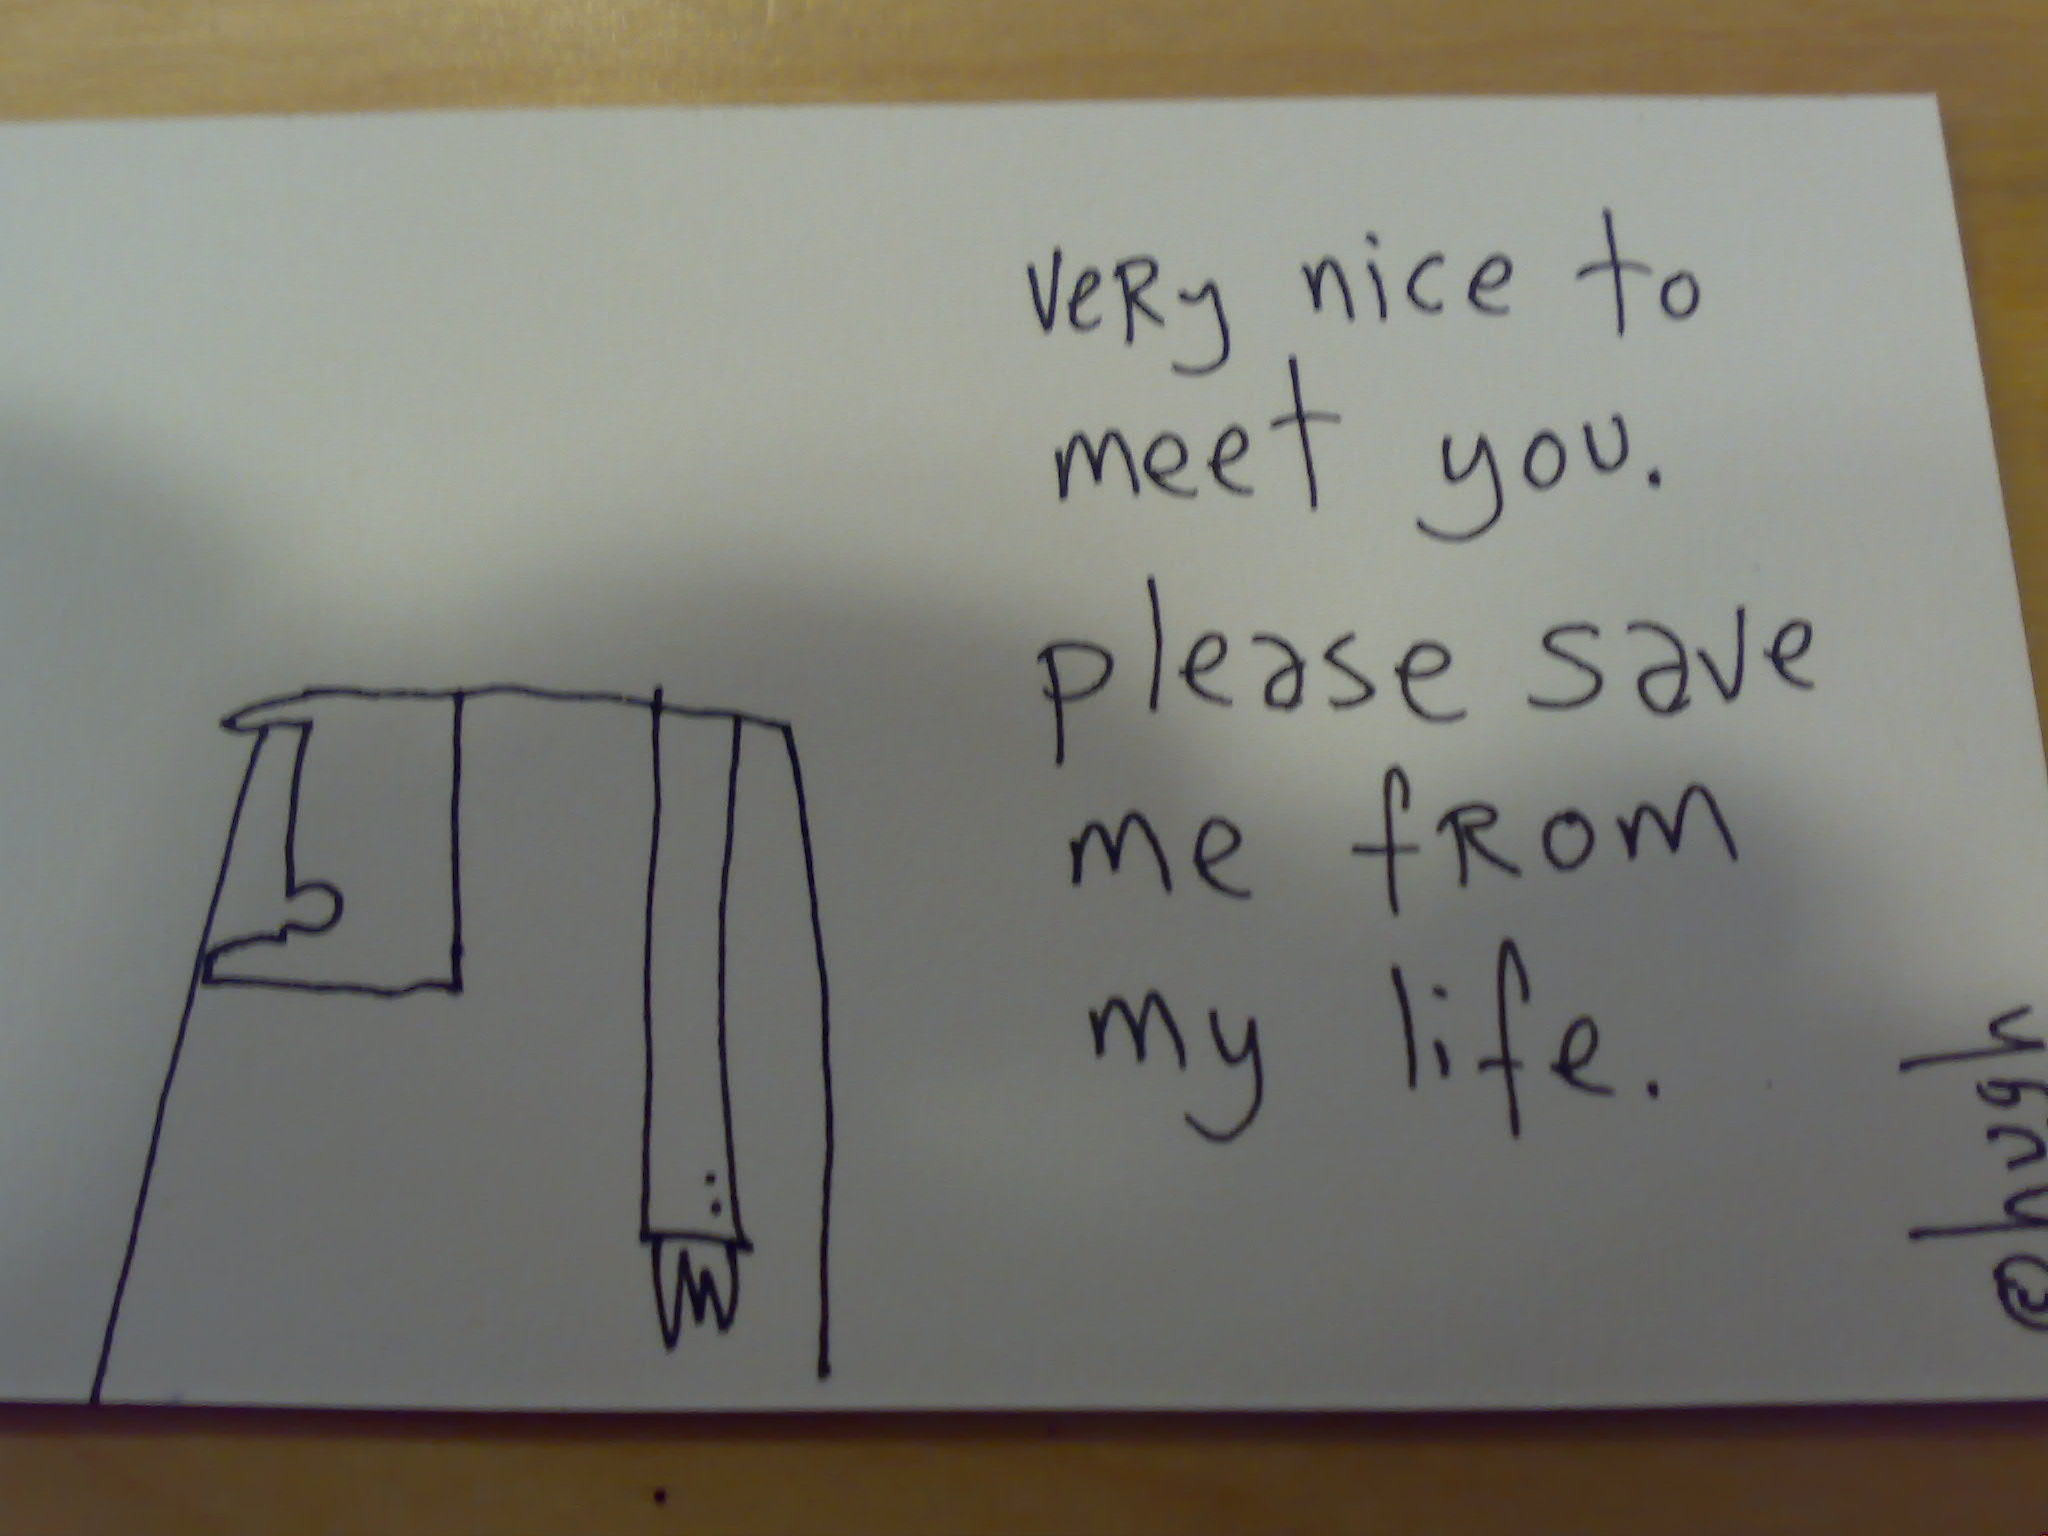 very nice to
meet you.
please save
me from
my life.